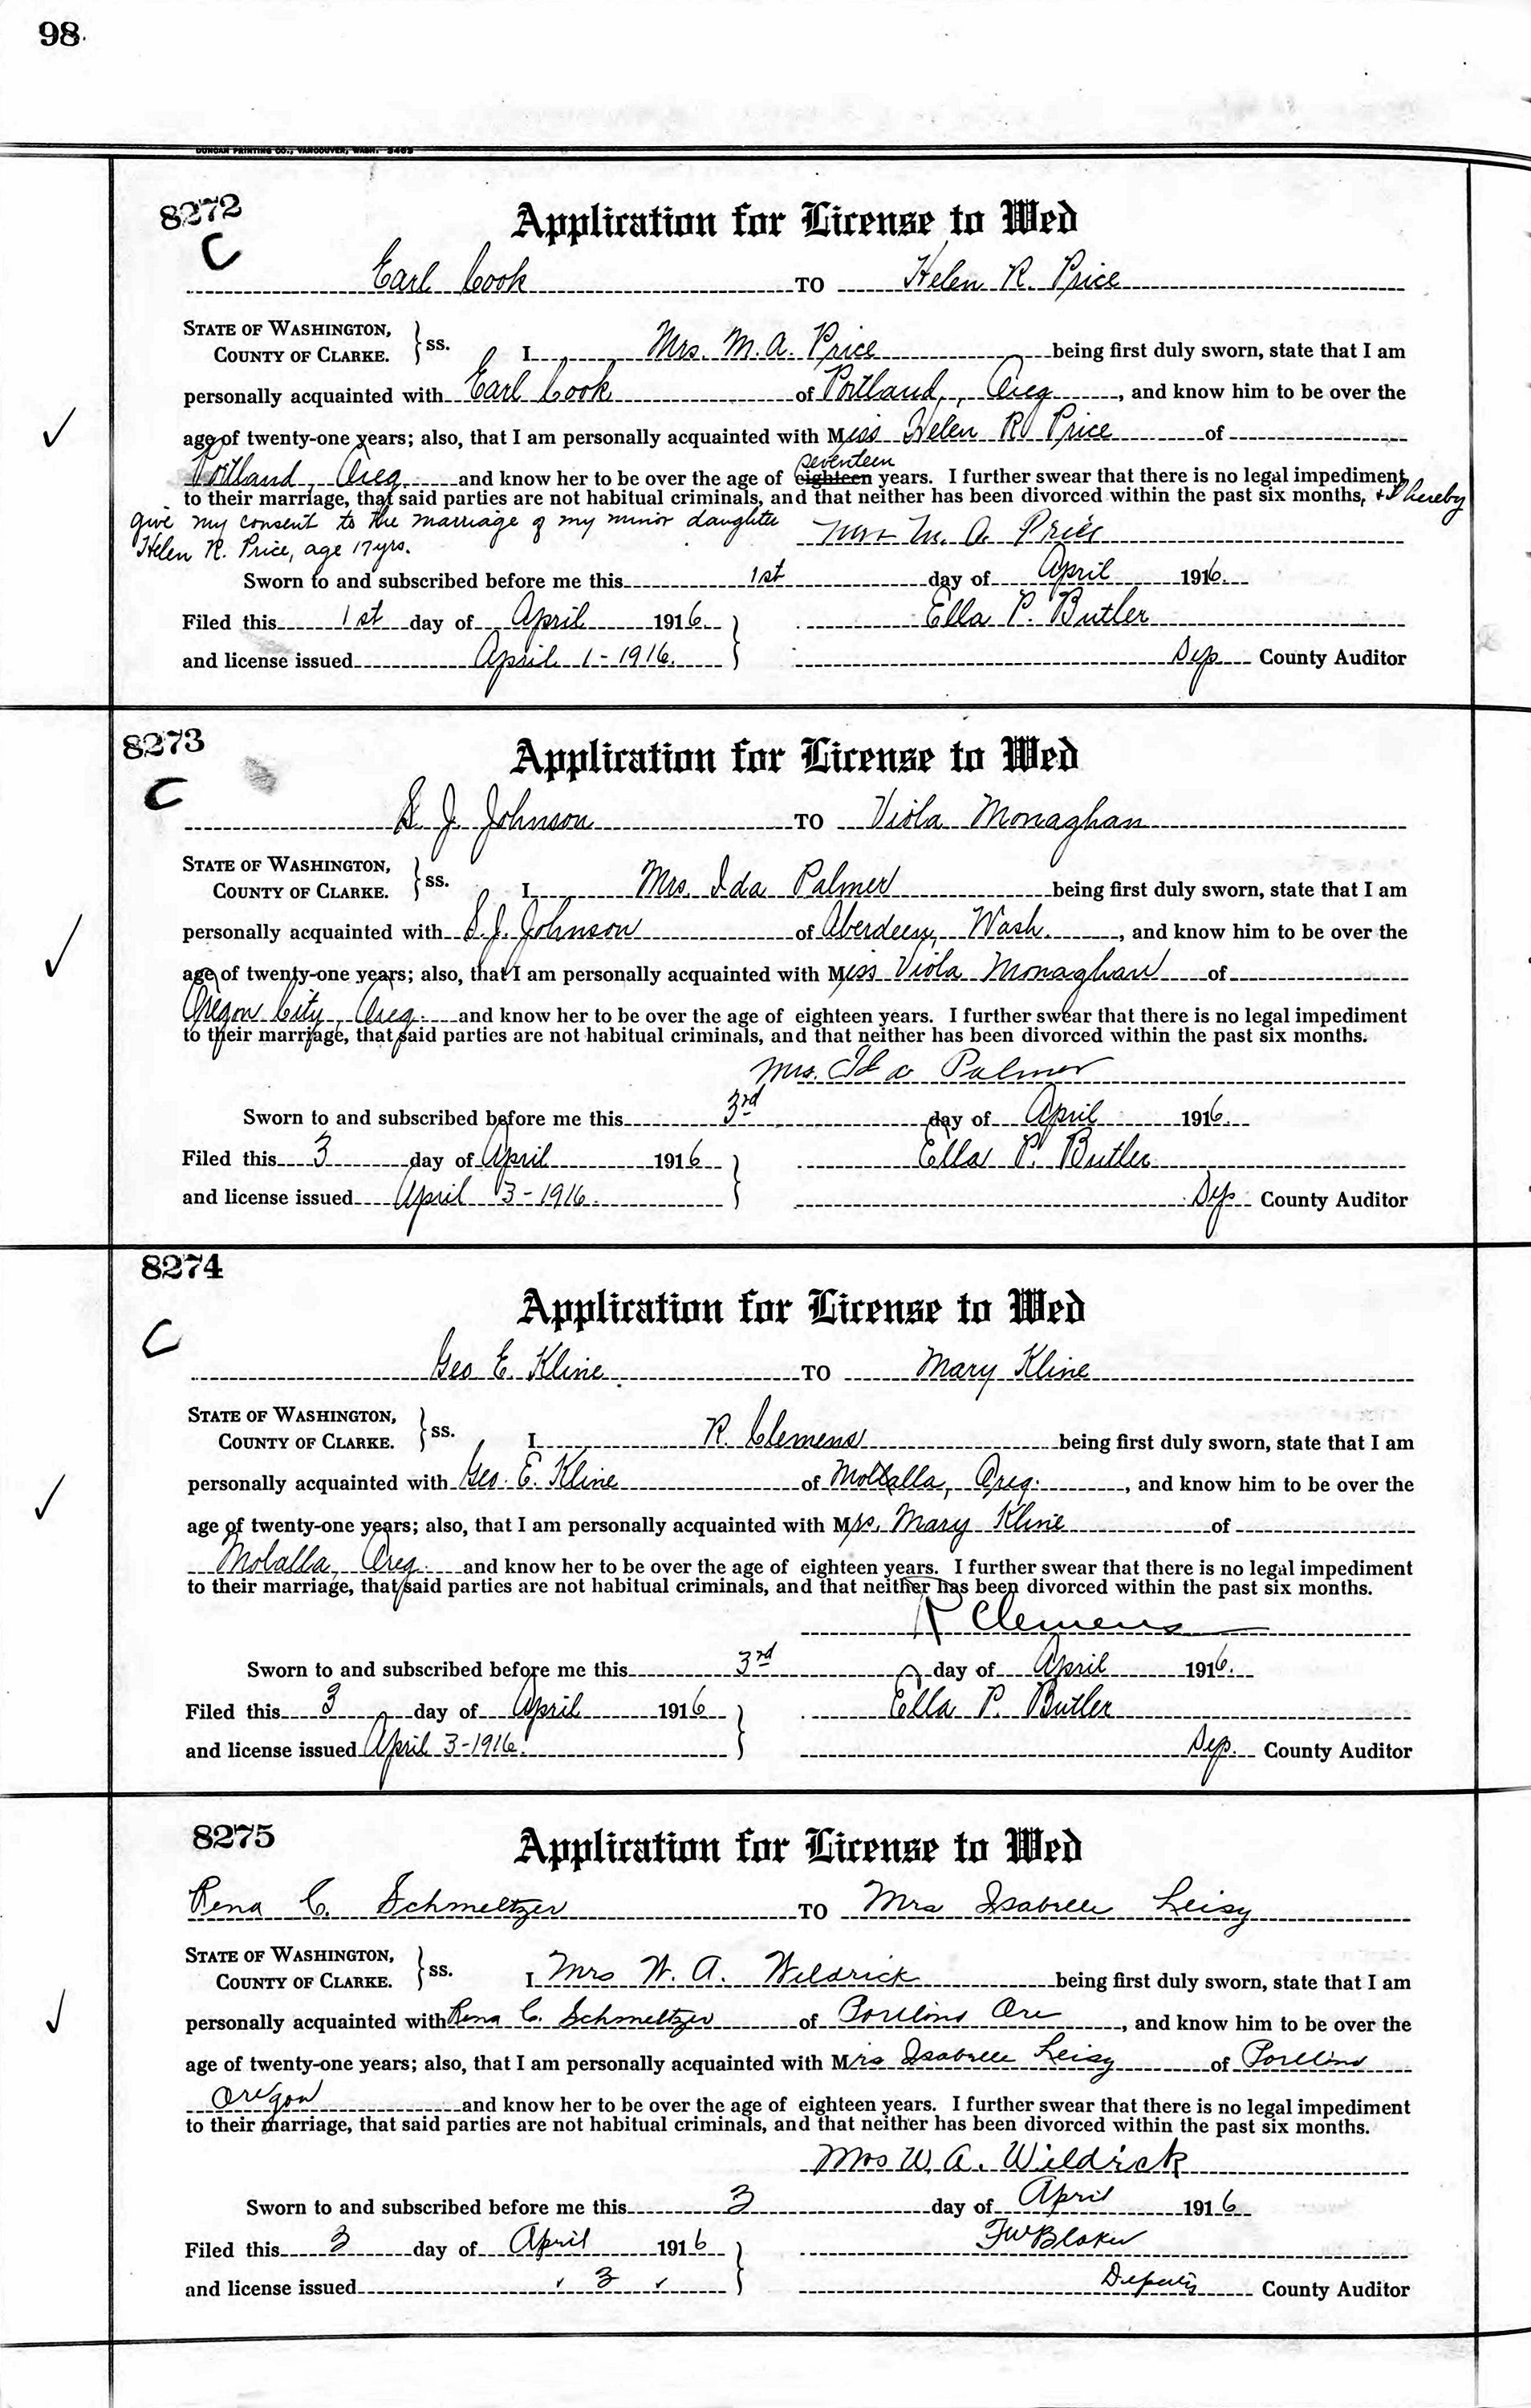 98
DUNCAN PRINTING CO., VANCOUVER, WASH. 3463
8272
C
Application for License to Wed
Earl Cook TO Helen R. Price
STATE OF WASHINGTON, COUNTY OF CLARKE. } ss. I Mrs. M. A. Price being first duly sworn, state that I am
personally acquainted with Earl Cook of Portland, Oreg, and know him to be over the
age of twenty-one years; also, that I am personally acquainted with Miss Helen R. Price of
seventeen
Portland, Oreg. and know her to be over the age of eighteen years. I further swear that there is no legal impediment
to their marriage, that said parties are not habitual criminals, and that neither has been divorced within the past six months, + I hereby
give my consent to the marriage of my minor daughter
Helen R. Price, age 17 yrs.
Mrs M. A. Price
Sworn to and subscribed before me this 1st day of April 1916.
Filed this 1st day of April 1916. } Ella P. Butler
and license issued April 1-1916. Dep County Auditor
8273
C
Application for License to Wed
S. J. Johnson TO Viola Monaghan
STATE OF WASHINGTON, COUNTY OF CLARKE. } ss. I Mrs. Ida Palmer being first duly sworn, state that I am
personally acquainted with S. J. Johnson of Aberdeen, Wash., and know him to be over the
age of twenty-one years; also, that I am personally acquainted with Miss Viola Monaghan of
Oregon City, Oreg. and know her to be over the age of eighteen years. I further swear that there is no legal impediment
to their marriage, that said parties are not habitual criminals, and that neither has been divorced within the past six months.
Mrs. Ida Palmer
Sworn to and subscribed before me this 3rd day of April 1916.
Filed this 3 day of April 1916 } Ella P. Butler
and license issued April 3-1916. Dep. County Auditor
8274
C
Application for License to Wed
Geo. E. Kline TO Mary Kline
STATE OF WASHINGTON, COUNTY OF CLARKE. } ss. I R. Clemens being first duly sworn, state that I am
personally acquainted with Geo. E. Kline of Molalla, Oreg., and know him to be over the
age of twenty-one years; also, that I am personally acquainted with Mrs. Mary Kline of
Molalla, Oreg. and know her to be over the age of eighteen years. I further swear that there is no legal impediment
to their marriage, that said parties are not habitual criminals, and that neither has been divorced within the past six months.
R Clemens
Sworn to and subscribed before me this 3rd day of April 1916.
Filed this 3 day of April 1916 } Ella P. Butler
and license issued April 3-1916. Dep. County Auditor
8275
Application for License to Wed
Rena C. Schmeltzer TO Mrs Isabelle Leisy
STATE OF WASHINGTON, COUNTY OF CLARKE. } ss. I Mrs W. A. Wildrick being first duly sworn, state that I am
personally acquainted with Rena C. Schmeltzer of Portland Ore, and know him to be over the
age of twenty-one years; also, that I am personally acquainted with Mrs Isabelle Leisy of Portland
Oregon and know her to be over the age of eighteen years. I further swear that there is no legal impediment
to their marriage, that said parties are not habitual criminals, and that neither has been divorced within the past six months.
Mrs W. A. Wildrick
Sworn to and subscribed before me this 3 day of April 1916
Filed this 3 day of April 1916 }
and license issued 3 Deputy County Auditor